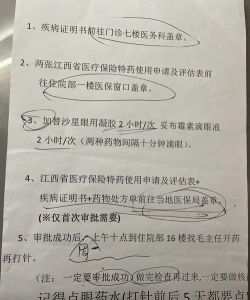 1、疾病证明书前往门诊七楼医务科盖章。
2、两张江西省医疗保险特药使用申请及评估表前
往住院部一楼医保窗口盖章。
3、加替沙星眼用凝胶 2 小时/次 妥布霉素滴眼液
2 小时/次（两种药物间隔十分钟滴眼）。
4、江西省医疗保险特药使用申请及评估表+
疾病证明书+药物处方单前往当地医保局盖章
(※仅首次审批需要)
5、审批成功后，上午十点到住院部 16 楼找毛主任开药
再打针。
（注： 一定要审批成功，做完检查再过来，一定要做核
记得点眼药水(打针前后 5 天都要点